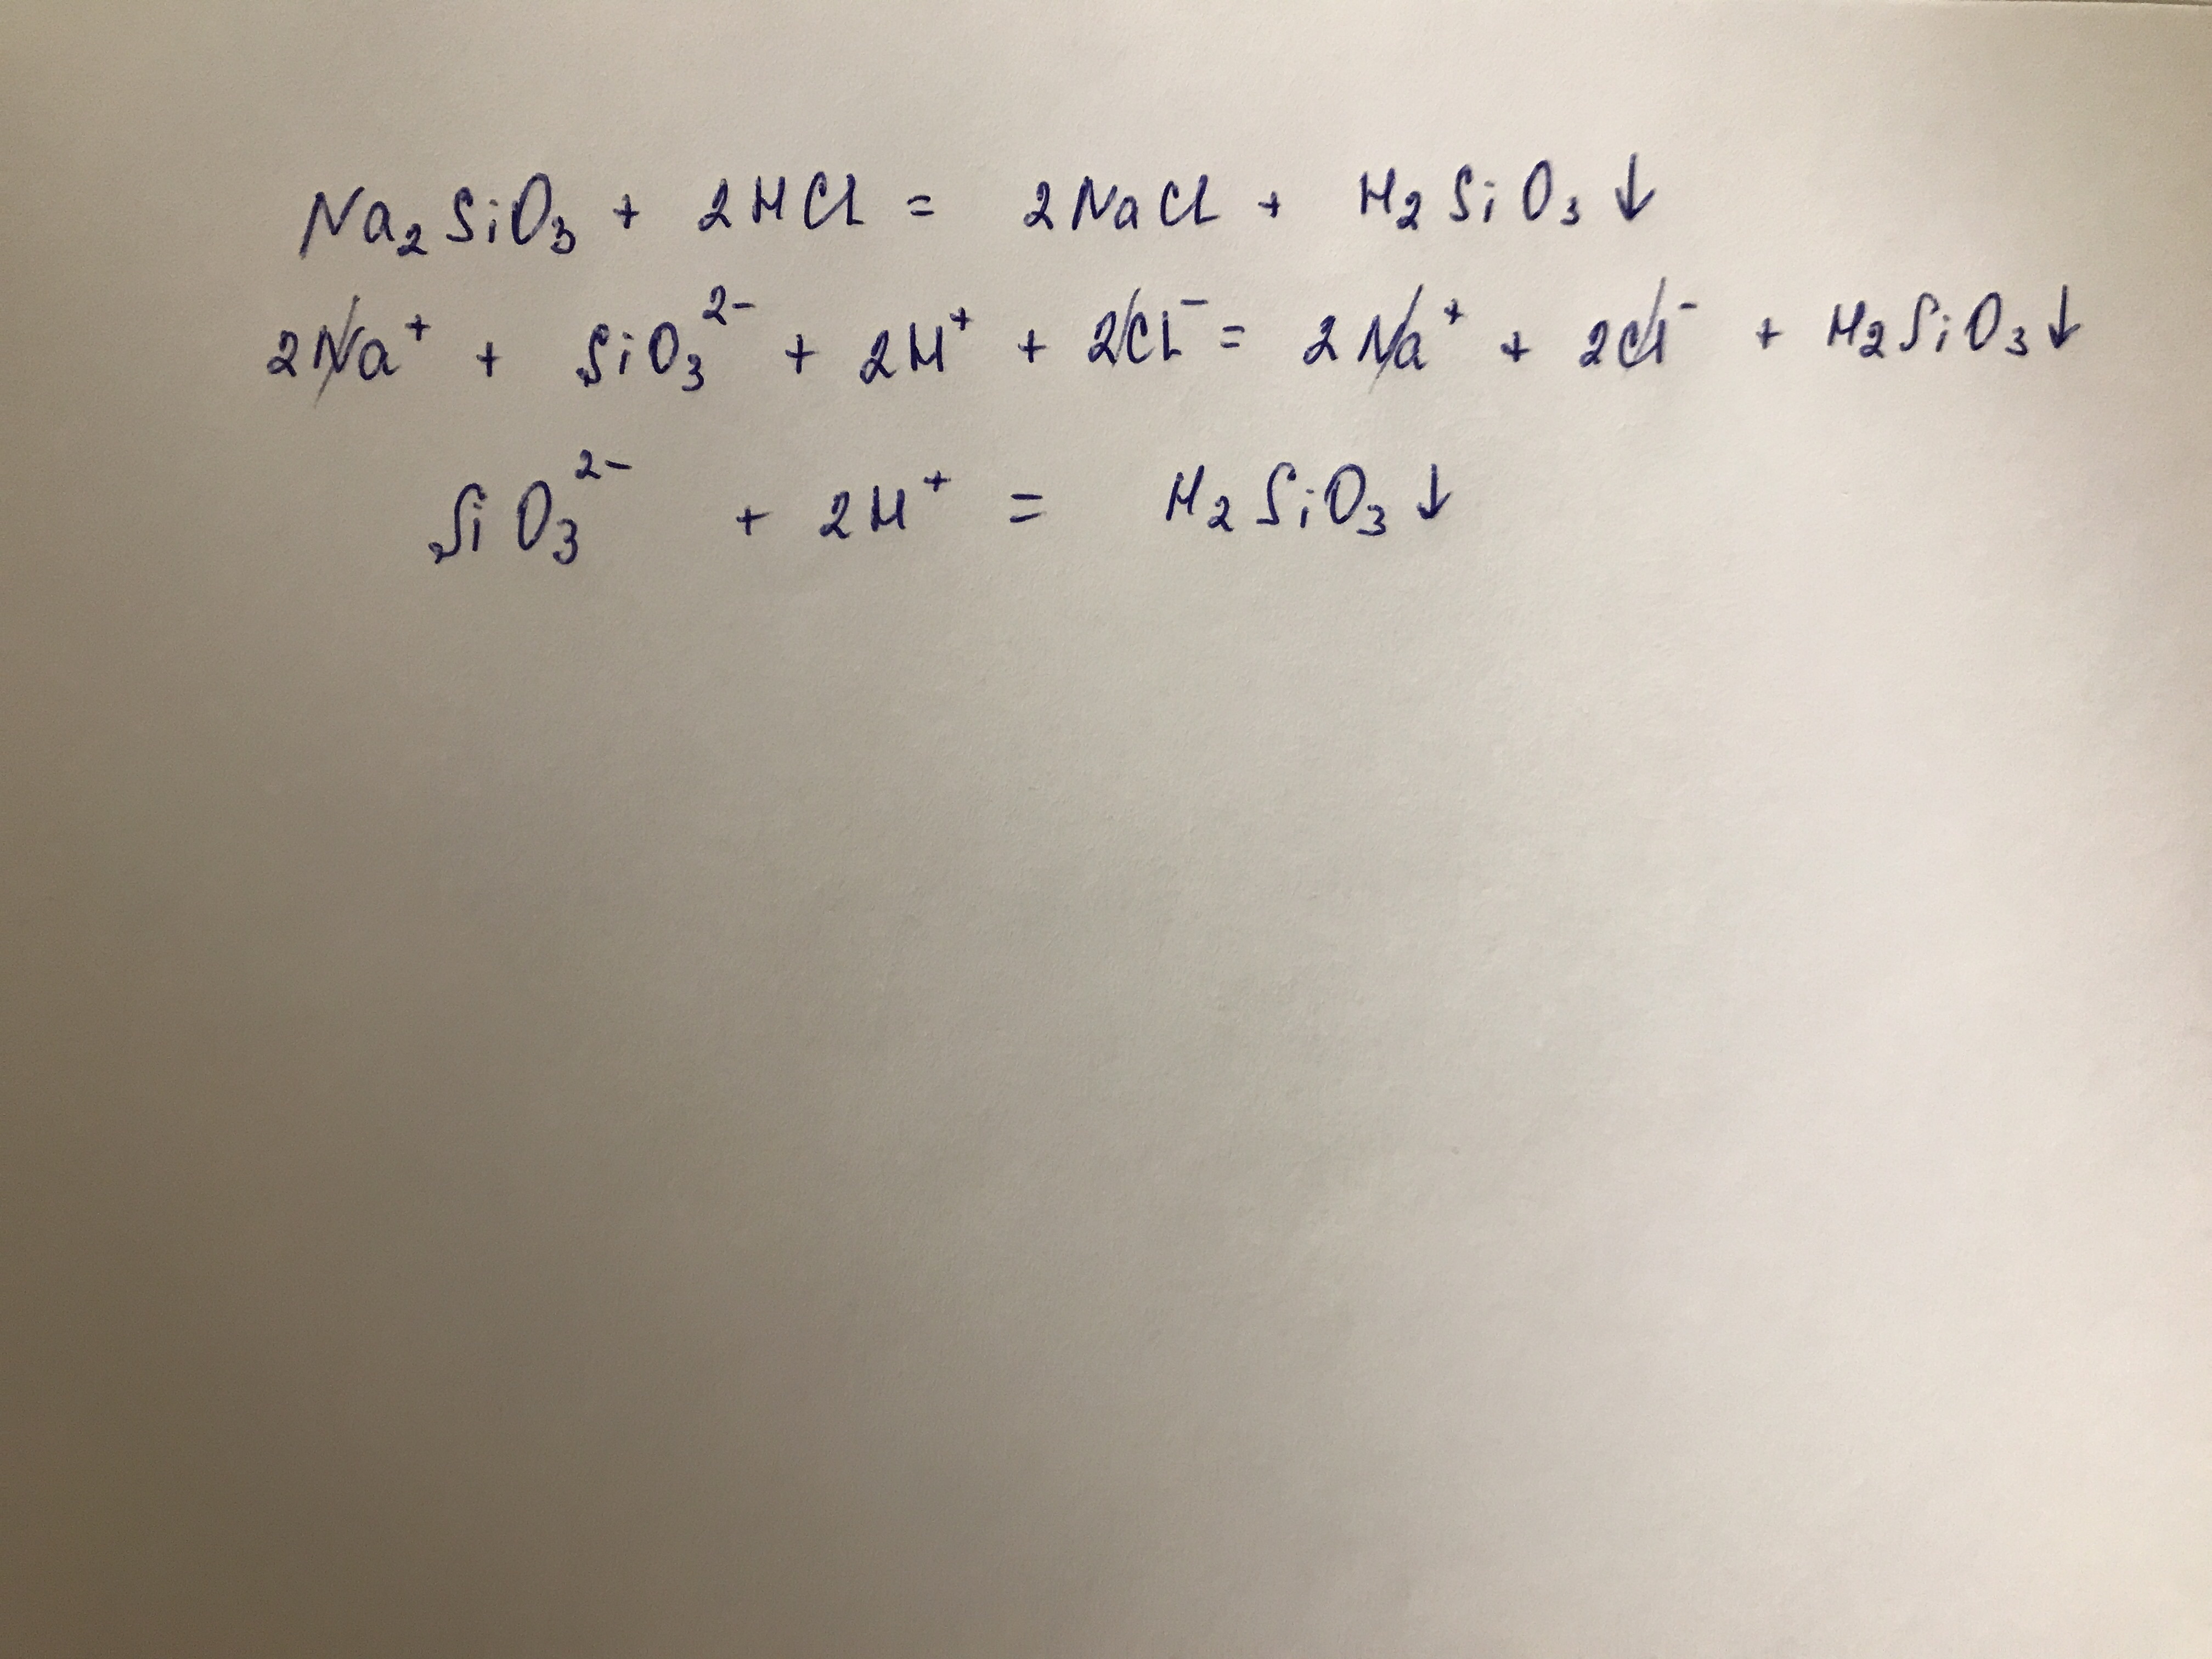 Na₂SiO₃ + 2HCl = 2NaCl + H₂SiO₃↓
2Na⁺ + SiO₃²⁻ + 2H⁺ + 2Cl⁻ = 2Na⁺ + 2Cl⁻ + H₂SiO₃↓
SiO₃²⁻ + 2H⁺ = H₂SiO₃↓